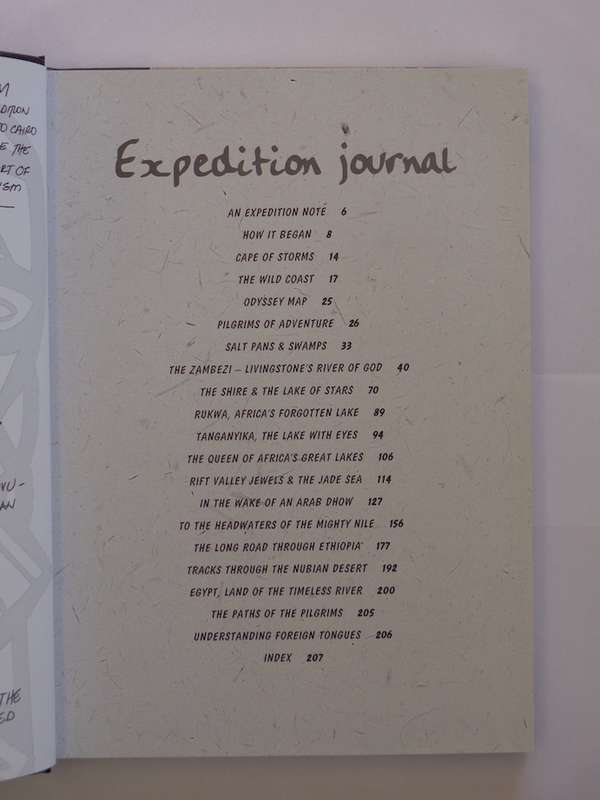 DITION
TO CAIRO
THE
RT OF
ISM
Expedition journal
AN EXPEDITION NOTE 6
HOW IT BEGAN 8
CAPE OF STORMS 14
THE WILD COAST 17
ODYSSEY MAP 25
PILGRIMS OF ADVENTURE 26
SALT PANS & SWAMPS 33
THE ZAMBEZI – LIVINGSTONE'S RIVER OF GOD 40
THE SHIRE & THE LAKE OF STARS 70
RUKWA, AFRICA'S FORGOTTEN LAKE 89
TANGANYIKA, THE LAKE WITH EYES 94
THE QUEEN OF AFRICA'S GREAT LAKES 106
RIFT VALLEY JEWELS & THE JADE SEA 114
IN THE WAKE OF AN ARAB DHOW 127
TO THE HEADWATERS OF THE MIGHTY NILE 156
THE LONG ROAD THROUGH ETHIOPIA 177
TRACKS THROUGH THE NUBIAN DESERT 192
EGYPT, LAND OF THE TIMELESS RIVER 200
THE PATHS OF THE PILGRIMS 205
UNDERSTANDING FOREIGN TONGUES 206
INDEX 207
VU -
AN
THE
ED